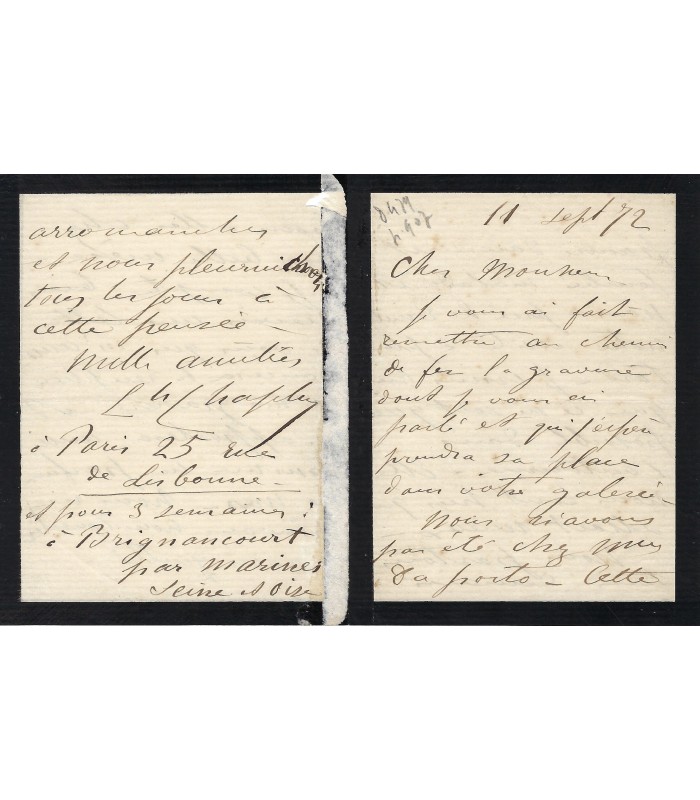 11 sept 72
Cher Monsieur
Je vous ai fait
remettre au chemin
de fer la gravure
dont je vous ai
parlé et qui j'espère
prendra sa place
dans votre galerie
nous n'avons
pas été chez
Da porto - Cette
arromanches
et nous pleurnichons
tous les jours à
cette pensée -
mille amitiés
Ch Chaplin
à Paris 25 rue
de Lisbonne -
et pour 3 semaines :
à Brignancourt
par marines
Seine et Oise